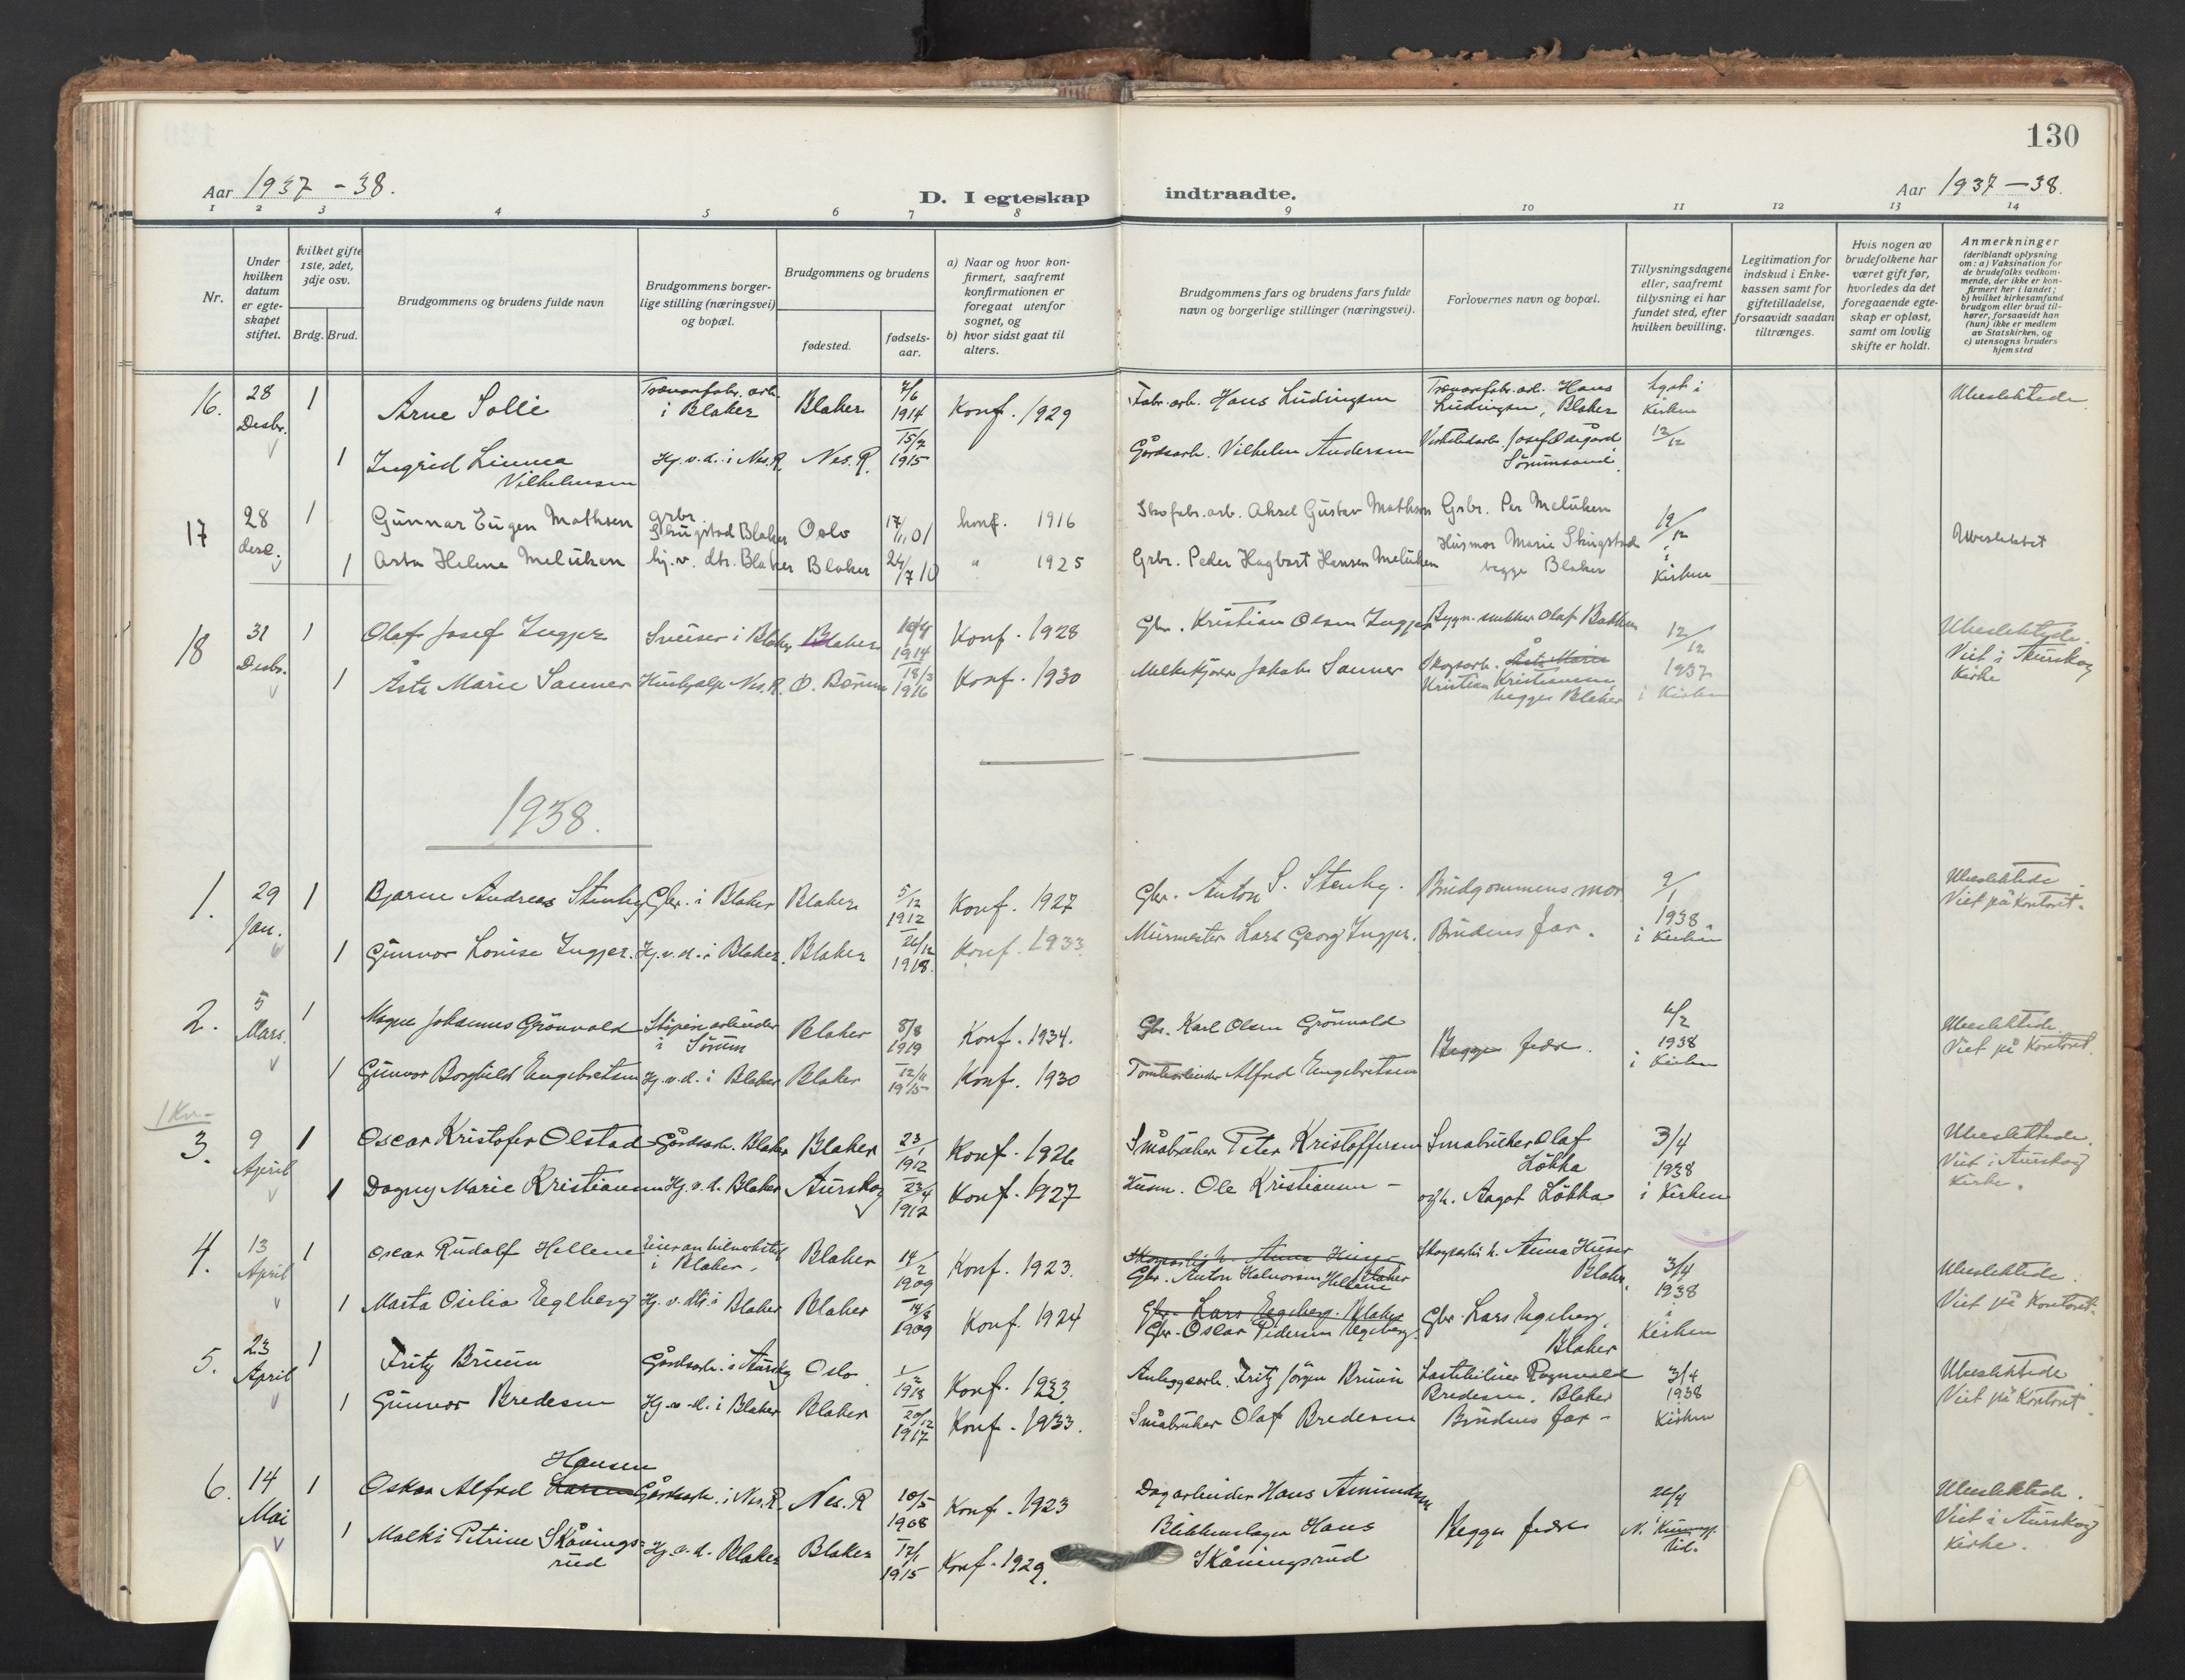 130
Aar 1937 - 38.
D. I egteskap
indtraadte.
Aar 1937 - 38.
1 2 3 4 5 6 7 8 9 10 11 12 13 14
Nr.
Under
hvilken
datum
er egte-
skapet
stiftet.
Hvilket gifte
1ste, 2det,
3dje osv.
Brdg. Brud.
Brudgommens og brudens fulde navn
Brudgommens borger-
lige stilling (næringsvei)
og bopæl.
Brudgommens og brudens
fødested.
fødsels-
aar.
a) Naar og hvor kon-
firmert, saafremt
konfirmationen er
foregaat utenfor
sognet, og
b) hvor sidst gaat til
alters.
Brudgommens fars og brudens fars fulde
navn og borgerlige stillinger (næringsvei).
Forlovernes navn og bopæl.
Tillysningsdagene
eller, saafremt
tillysning ei har
fundet sted, efter
hvilken bevilling.
Legitimation for
indskud i Enke-
kassen samt for
giftetilladelse,
forsaavidt saadan
tiltrænges.
Hvis nogen av
brudefolkene har
været gift før,
hvorledes da det
foregaaende egte-
skap er opløst,
samt om lovlig
skifte er holdt.
Anmerkninger
(deriblandt oplysning
om: a) Vaksination for
de brudefolks vedkom-
mende, der ikke er kon-
firmert her i landet;
b) hvilket kirkesamfund
brudgom eller brud til-
hører, forsaavidt han
(hun) ikke er medlem
av Statskirken, og
c) utensogns bruders
hjemsted
16. 28 Desbr. 1 Arne Solli Trevarefabr. arb. i Blaker Blaker 7/6 1914 Konf. 1929 Fabr. arb. Hans Ludvigsen Trevarefabr. arb. Hans Ludvigsen, Blaker Lyst i Kirken Ubeslektede
1 Ingrid Linnea Vilhelmsen Hj. v. d. i Nes. R. Nes. R. 15/7 1915 Gårdsarb. Vilhelm Andersen Verkstedarb. Josef Ødegård Sørumsand. 12/12
17 28 desb. 1 Gunnar Eugen Mathsen grbr. Skugstad Blaker Oslo 17/11 01 konf. 1916 Skofabr. arb. Aksel Gustav Mathsen Grbr. Per Meluken 12/12 i Kirken Ubeslektet
1 Asta Helene Meluken hj. v. dtr. Blaker Blaker 24/7 10 " 1925 Grbr. Peder Hagbart Hansen Meluken Husmor Marie Skugstad begge Blaker
18 31 Desbr. 1 Olaf Josef Ingjer Sveiser i Blaker Blaker 1914 Konf. 1928 Gbr. Kristian Olsen Ingjer Bygn. snekker Olaf Bakken 12/12 1937 i Kirken Ubeslektede. Viet i Aurskog Kirke
1 Åsta Marie Sanner Hushjælp Nes. R. Ø. Bærum 18/3 1916 Konf. 1930 Melkekjører Jakob Sanner Skogsarb. Åsta Marie Kristian Kristiansen, begge Blaker
1938.
1. 29 Jan. 1 Bjarne Andreas Stenby Gbr. i Blaker Blaker 5/12 1912 Konf. 1927 Gbr. Anton S. Stenby. Brudgommens mor 9/1 1938 i Kirken Ubeslektede Viet på Kontoret.
1 Gunvor Lovise Ingjer. Hj. v. d. i Blaker. Blaker 26/12 1918. Konf. 1933. Murmester Lars Georg Ingjer. Brudens far.
2. 5 Mars. 1 Magne Johannes Grönvold Støperiarbeider i Sørum Blaker 8/8 1919 Konf. 1934. Gbr. Karl Olsen Grönvold Begges fedre. 1938 i Kirken Ubeslektede. Viet på Kontoret.
1 Gunvor Borghild Engebretsen Hj. v. d. i Blaker Blaker 12/11 1915 Konf. 1930 Tomtearbeider Alfred Engebretsen
3. 9 April 1 Oscar Kristofer Olstad Gårdsarb. Blaker Blaker 23/1 1912 Konf. 1926 Småbruker Peter Kristoffersen Småbruker Olaf Løkka 3/4 1938 i Kirken Ubeslektede. Viet i Aurskog Kirke.
1 Dagny Marie Kristiansen Hj. v. d. Blaker Aurskog 23/4 1912 Konf. 1927 Husm. Ole Kristiansen - og h. Aagot Løkka
4. 13 April 1 Oscar Rudolf Hellene i Blaker. Blaker 14/2 1909 Konf. 1923. Gbr. Anton Halvorsen Hellene Skogsarb. h. Anna Huser Blaker. 3/4 1938 i Kirken Ubeslektede. Viet på Kontoret.
1 Marta Osilia Egeberg Hj. v. dtr. i Blaker Blaker 14/8 1909 Konf. 1924 Gbr. Lars Egeberg. Blaker Gbr. Oscar Pedersen Egeberg. Gbr. Lars Egeberg, Blaker
5. 23 April 1 Fritz Bruun Gårdsarb. i Aurskog Oslo 1/2 1918 Konf. 1933 Anleggsarb. Fritz Jörgen Bruun Lastebileier Ragnvald Bredesen. Blaker 3/4 1938 i Kirken Ubeslektede Viet på Kontoret.
1 Gunvor Bredesen Hj. v. d. i Blaker Blaker 20/12 1917 Konf. 1933. Småbruker Olaf Bredesen Brudens far -
6. 14 Mai 1 Oskar Alfred Larsen Hansen Gårdsarb. i Nes. R. Nes. R 10/5 1908 Konf. 1923 Dagarbeider Hans Amundsen Begges fedre Ubeslektede. Viet i Aurskog Kirke.
1 Malhi Petrine Skånings- rud Hj. v. d. Blaker Blaker 17/1 1915 Konf. 1929. Blikkenslager Hans Skåningsrud